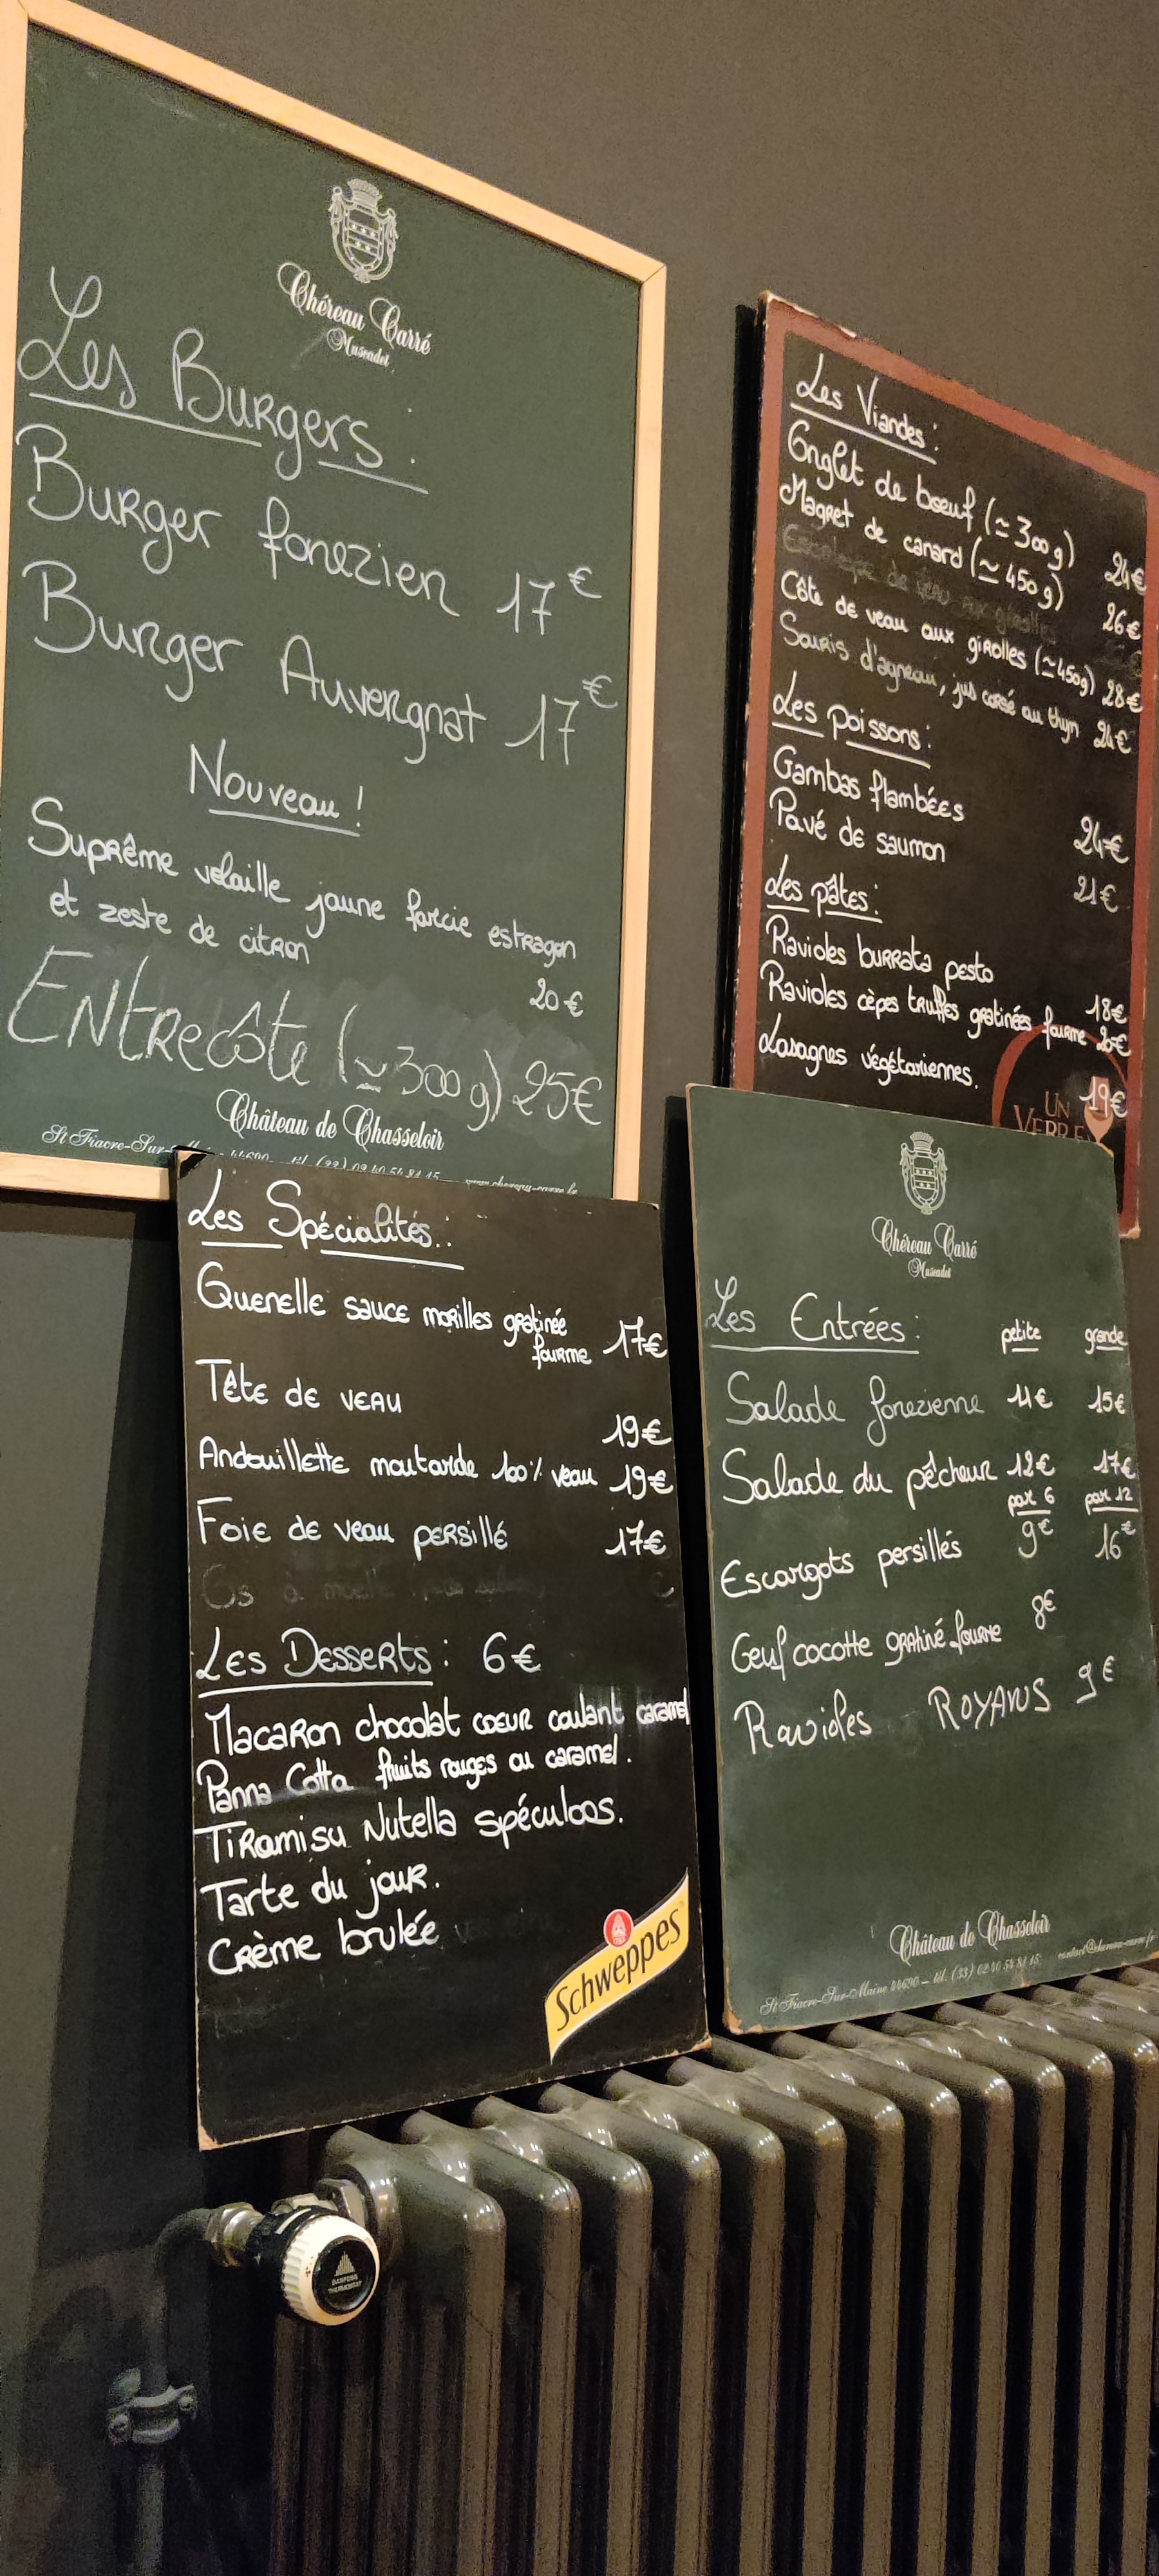 Chéreau Carré
Muscadet
Les Burgers :
Burger forezien 17€
Burger Auvergnat 17€
Nouveau !
Suprême volaille jaune farcie estragon
et zeste de citron
20€
Entrecôte (≃300g) 25€
Château de Chasseloir
St Fiacre-Sur- 44690 – tél. (33) 02 40 54 81 15
Les Viandes :
Onglet de boeuf (≃300g) 24€
Magret de canard (≃450g) 26€
Escalope de veau aux girolles
Côte de veau aux girolles (≃450g) 28€
Souris d'agneau, jus corsé au thym 24€
Les poissons :
Gambas flambées 24€
Pavé de saumon 21€
Les pâtes :
Ravioles burrata pesto 18€
Ravioles cèpes truffes gratinées fourme 20€
Lasagnes végétariennes. 19€
UN
VERRE
Les Spécialités :
Quenelle sauce morilles gratinée
fourme 17€
Tête de veau 19€
Andouillette moutarde 100% veau 19€
Foie de veau persillé 17€
Os à moelle
Les Desserts : 6€
Macaron chocolat coeur coulant caramel
Panna Cotta fruits rouges ou caramel.
Tiramisu Nutella spéculoos.
Tarte du jour.
Crème brulée
Schweppes
Chéreau Carré
Muscadet
Les Entrées : petite grande
Salade forezienne 11€ 15€
Salade du pêcheur 12€ 17€
par 6 par 12
Escargots persillés 9€ 16€
Oeuf cocotte gratiné fourme 8€
Ravioles ROYANS 9€
Château de Chasseloir
St Fiacre-Sur-Maine 44690 – tél. (33) 02 40 54 81 15
DANFOSS
THERMOSTAT